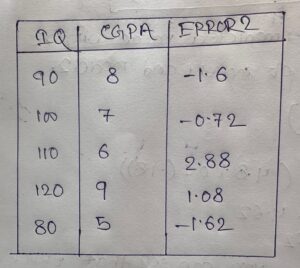 IQ CGPA ERROR2
90 8 -1.6
100 7 -0.72
110 6 2.88
120 9 1.08
80 5 -1.62